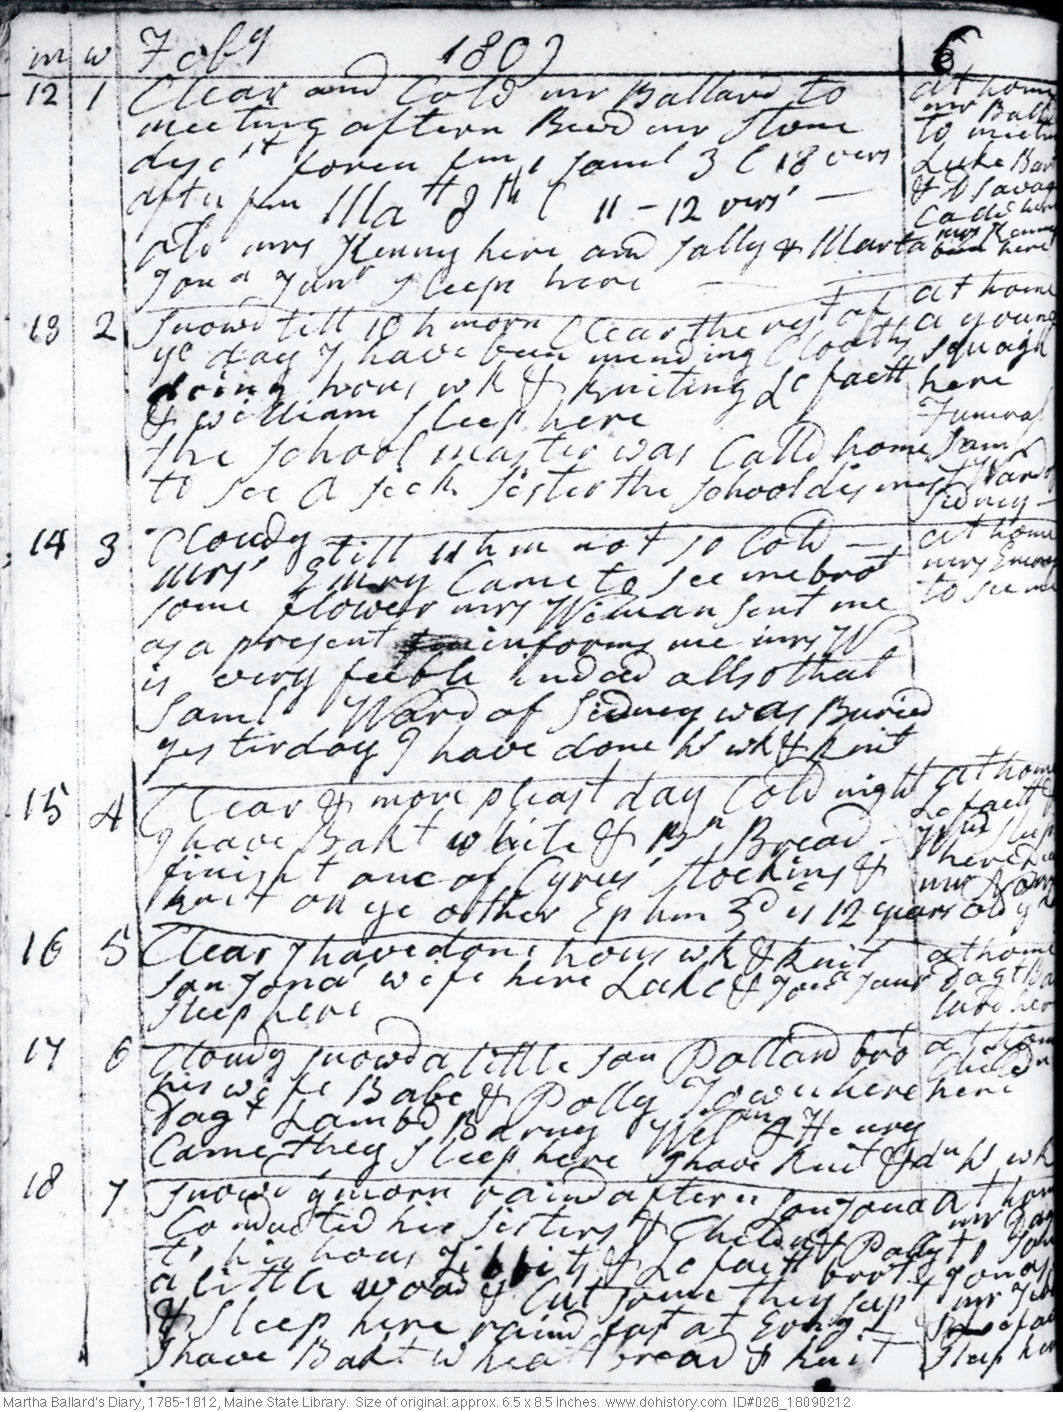 m w Feby 1809 6
12 1 Clear and Cold mr Ballard to
meeting aftern Revd mr Stone
disct foren fm 1 Saml 3 C 18 vers
after fm Mat 8th C 11 - 12 vers
old mrs Kenny here and Sally & Marta
Jona Junr Sleeps here
at home
mr Ball
to meetin
Luke Bar
& D Savag
mrs Kenny
here
13 2 Snowd till 10 h morn Clear the rest of
ye day I have been mending Cloaths
doing hous wk & kniting Lefaett
& William Sleep here
the School master was Calld home
to see a sick sister the school dismist
at home
a young
squagh
here
Funeral
Saml
Ward of
Sidney
14 3 Cloudy till 11 h m not so Cold
mrs Emry Came to see me brot
some flower mrs Weman sent me
as a present informs me mrs W
is very feeble indead allso that
Saml Ward of Sidney was Buried
yesterday I have done hs wk & knit
at home
mrs Emery
to see me
15 4 Clear & more pleast day Cold night
I have Bakt white & Bn Bread
finisht one of Cyrus' Stockins &
knit on ye other Ephm 3d is 12 years old
at home
Lefaett &
Wm Sleep
here
16 5 Clear I have done hous wk & knit
son Jona' wife here Luke & Jona Junr
sleep here
at home
Dagt Ba
lard her
17 6 Cloudy snowd a little son Pollard bro
his wife Babe & Polly Town here
Dagt Lambd Barny Wm & Henry
Came they Sleep here I have knit & dn hs wk
at hom
Childn
here
18 7 Snowd ys morn raind aftern son Jona
Conducted his Sisters & Childn & Polly
to his hous Tibbits & Lefaett brot
a little wood & Cut some they sup
& Sleep here raind fast at Evng
I have Bakt wheat bread & knit
at hom
mr
to Jon
&
mr Tib
Lefae
Sleep her
Martha Ballard's Diary, 1785-1812, Maine State Library. Size of original: approx. 6.5 x 8.5 inches. www.dohistory.com ID#028_18090212